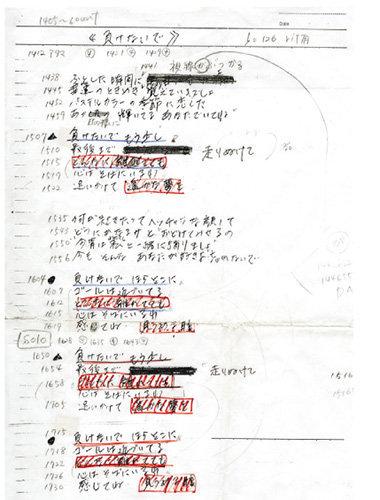 1405~ count
Date
《負けないで》
1412 992
視線がぶつかる
1438 ふとした瞬間に
1445 幸運のときめき 覚えているでしょ
1452 パステルカラーの季節に恋した
1459 あの日のように 輝いてる あなたでいてね
1507 ▲ 負けないで もう少し
1510 最後まで 走りぬけて
1515 どんなに 離れてても
1519 心は そばにいるわ
1522 追いかけて 遥かな夢を
1535 何が起きたって ヘッチャラな顔して
1543 どうにかなるサと おどけてみせるの
1550 "今宵は私と一緒に踊りましょ"
1556 今も そんな あなたが好きよ 忘れないで
1604 ● 負けないで ほらそこに
1609 ゴールは近づいてる
1612 どんなに 離れてても
1615 心は そばにいるわ
1619 感じてね 見つめる瞳
SOLO
1650 ▲ 負けないで もう少し
1654 最後まで 走りぬけて
1658 どんなに 離れてても
心は そばにいるわ
1705 追いかけて 遥かな夢を
1715 ● 負けないで ほらそこに
1718 ゴールは近づいてる
1722 どんなに 離れてても
1726 心は そばにいるわ
1730 感じてね 見つめる瞳